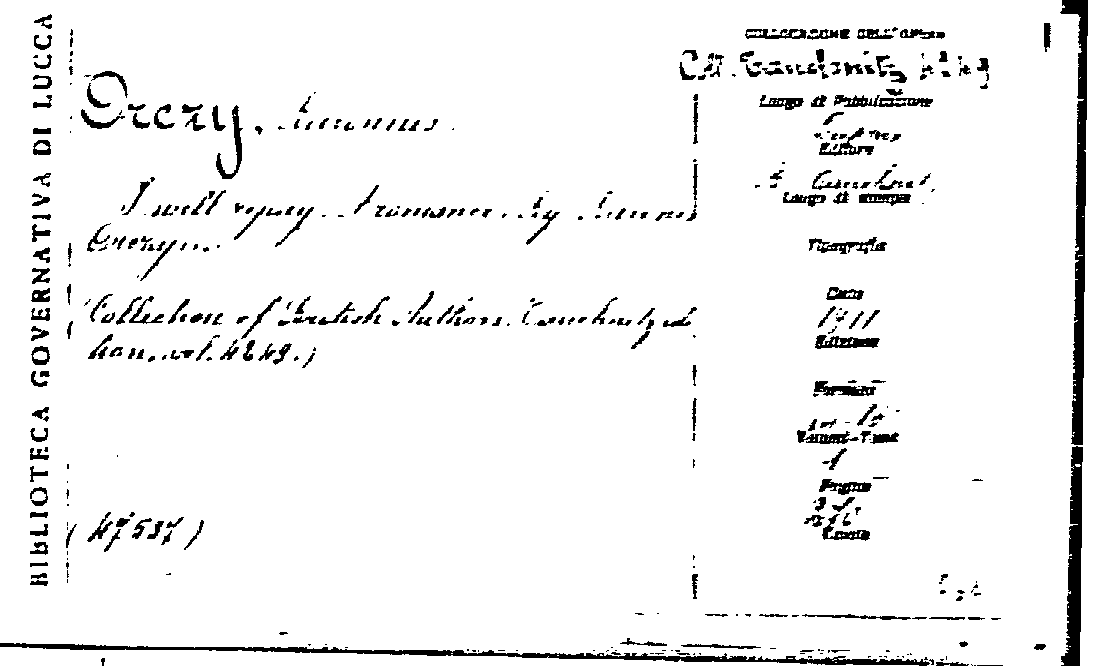 BIBLIOTECA GOVERNATIVA DI LUCCA
Orczy,
I will repay. A romance. By
Orczy
Collection of British Authors. Tauchnitz edi
tion, vol. 4249.)
(47537)
COLLOCAZIONE DELL'OPERA
Tauchnitz 4249
Luogo di Pubblicazione
Editore
Luogo di stampa
Tipografia
Data
1911
Edizione
Formato
in-16
Volumi-Tomi
1
Pagine